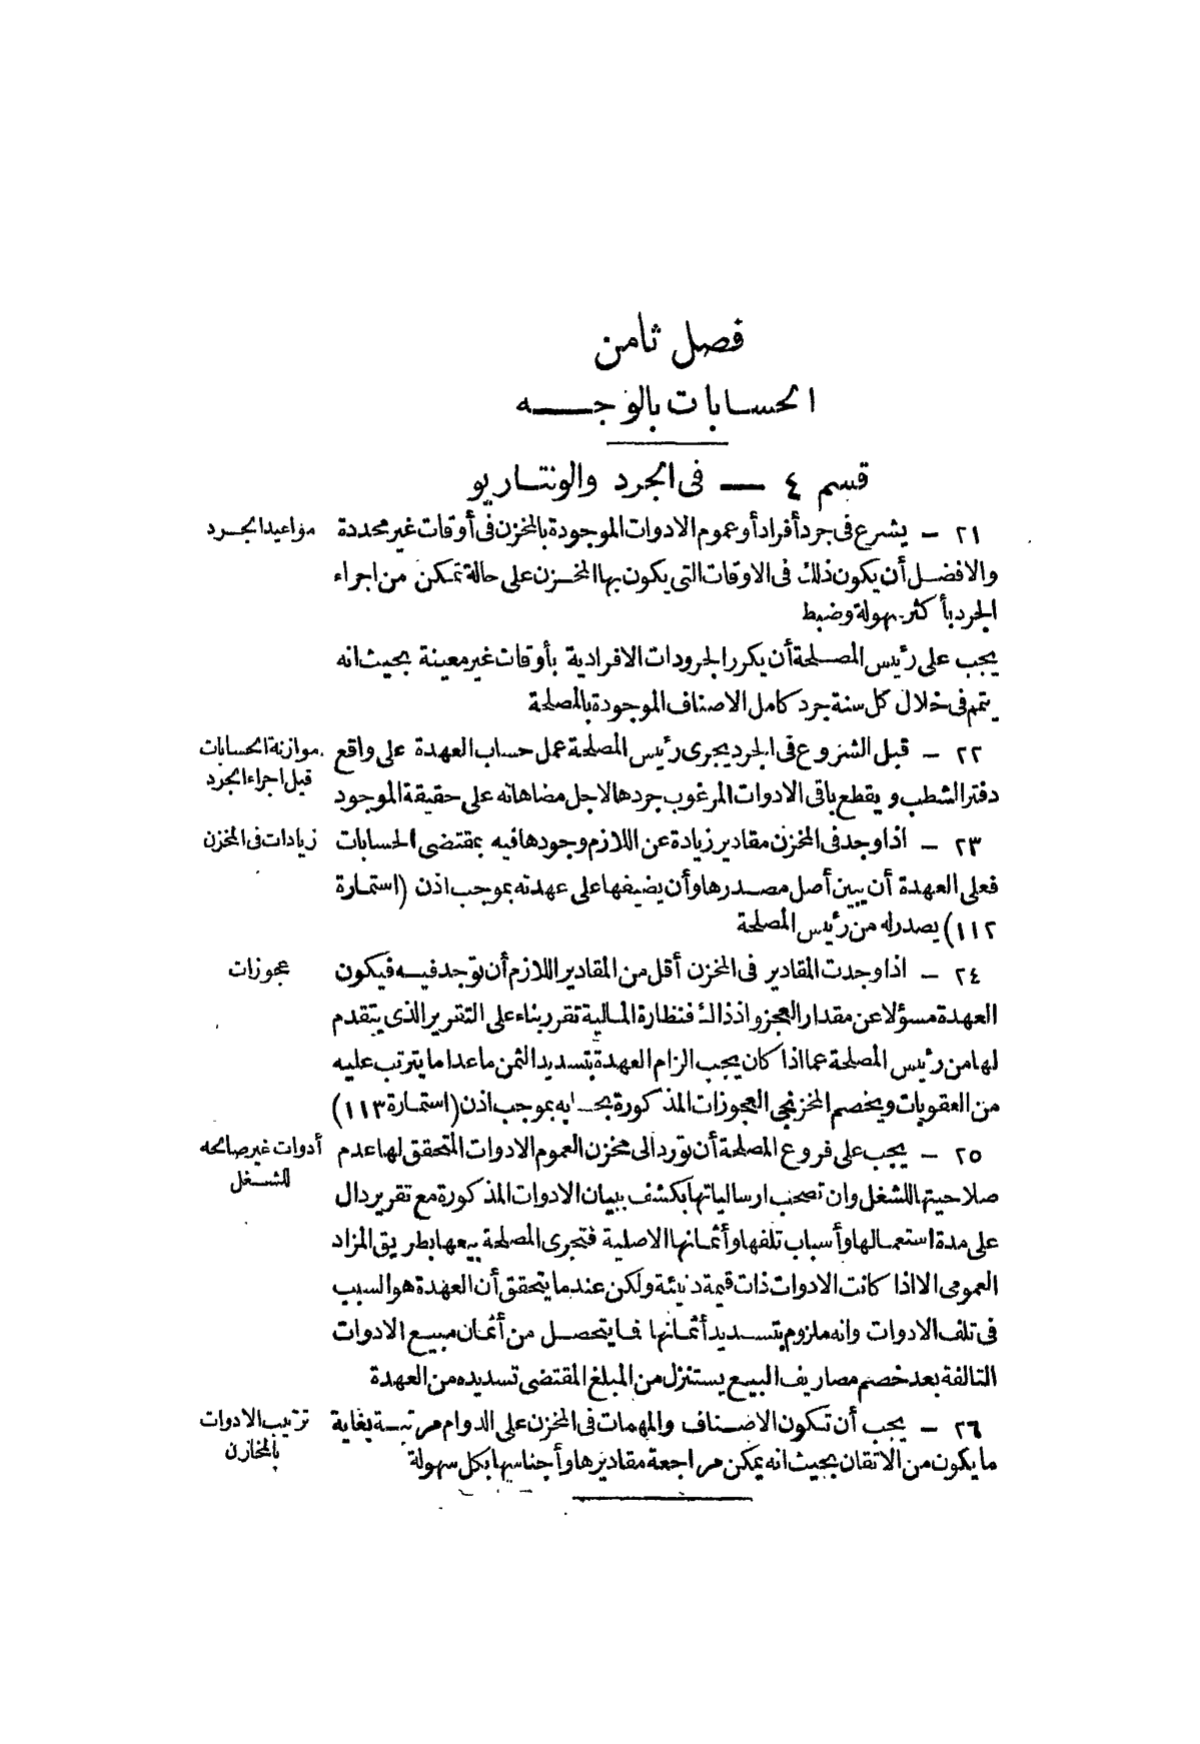 فصل ثامن
الحسابات بالوجه
قسم ٤ — فى الجرد والونتاريو
٢١ — يشرع فى جرد أفراد أو عموم الادوات الموجودة بالمخزن فى أوقات غير محددة
مواعيد الجرد
والافضل أن يكون ذلك فى الاوقات التى يكون بها المخزن على حالة تمكن من اجراء
الجرد بأكثر سهولة وضبط
يجب على رئيس المصلحة أن يكرر الجرودات الافرادية بأوقات غير معينة بحيث انه
يتمم فى خلال كل سنة جرد كامل الاصناف الموجودة بالمصلحة
٢٢ — قبل الشروع فى الجرد يجرى رئيس المصلحة عمل حساب العهدة على واقع
موازنة الحسابات
قبل اجراء الجرد
دفتر الشطب ويقطع باقى الادوات المرغوب جردها لاجل مضاهاته على حقيقة الموجود
٢٣ — اذا وجد فى المخزن مقادير زيادة عن اللازم وجودها فيه بمقتضى الحسابات
زيادات فى المخزن
فعلى العهدة أن يبين أصل مصدرها وأن يضيفها على عهدته بموجب اذن (استمارة
١١٢) يصدر له من رئيس المصلحة
٢٤ — اذا وجدت المقادير فى المخزن أقل من المقادير اللازم أن توجد فيه فيكون
عجوزات
العهدة مسؤلا عن مقدار العجز واذ ذاك فنظارة المالية تقرر بناء على التقرير الذى يتقدم
لها من رئيس المصلحة عما اذا كان يجب الزام العهدة بتسديد الثمن ما عدا ما يترتب عليه
من العقوبات ويخصم المخزنجى العجوزات المذكورة بحسابه بموجب اذن (استمارة ١١٣)
٢٥ — يجب على فروع المصلحة أن تورد الى مخزن العموم الادوات المتحقق لها عدم
أدوات غير صالحه
للشغل
صلاحيتها للشغل وان تصحب ارسالياتها بكشف ببيان الادوات المذكورة مع تقرير دال
على مدة استعمالها وأسباب تلفها وأثمانها الاصلية فتجرى المصلحة بيعها بطريق المزاد
العمومى الا اذا كانت الادوات ذات قيمة دنيئة ولكن عند ما يتحقق أن العهدة هو السبب
فى تلف الادوات وانه ملزوم بتسديد أثمانها فما يتحصل من أثمان مبيع الادوات
التالفة بعد خصم مصاريف البيع يستنزل من المبلغ المقتضى تسديده من العهدة
٢٦ — يجب أن تكون الاصناف والمهمات فى المخزن على الدوام مرتبة بغاية
ترتيب الادوات
بالمخازن
ما يكون من الاتقان بحيث انه يمكن مراجعة مقاديرها وأجناسها بكل سهولة